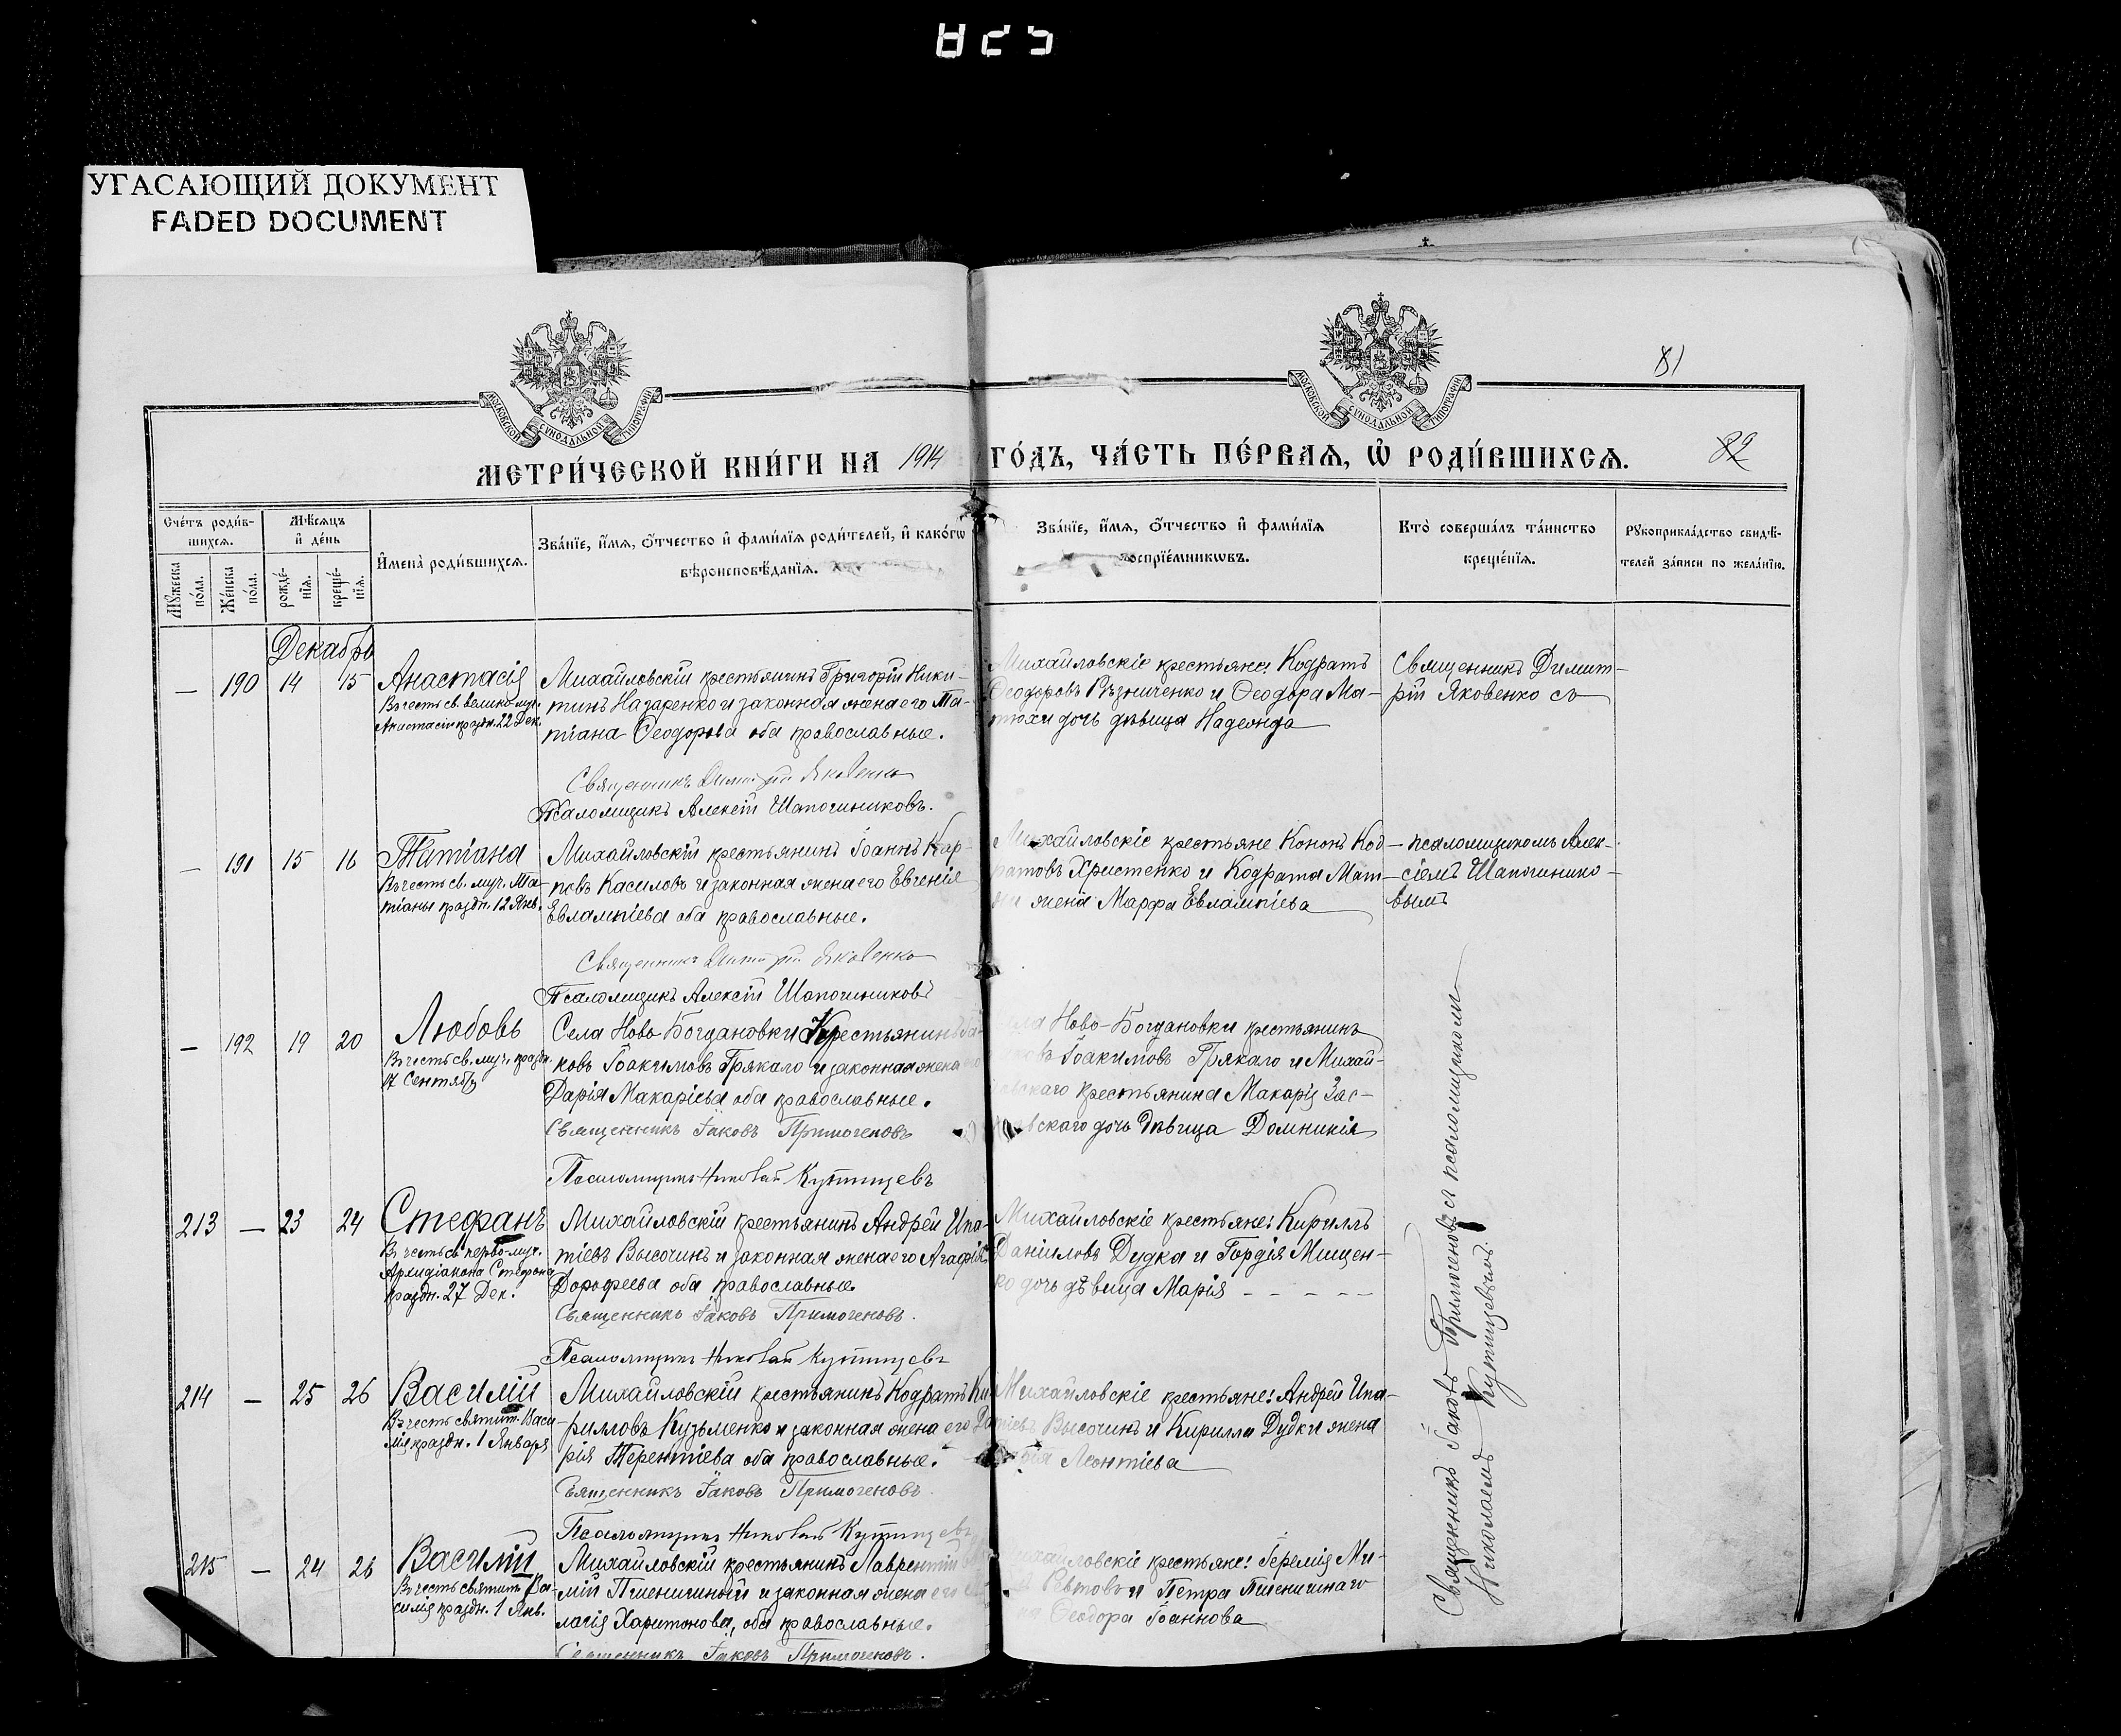 УГАСАЮЩИЙ ДОКУМЕНТ
FADED DOCUMENT
МОСКОВСКОЙ СѴНОДАЛЬНОЙ ТИПОГРАФІИ
МОСКОВСКОЙ СѴНОДАЛЬНОЙ ТИПОГРАФІИ
81
82
МЕТРИ́ЧЕСКОЙ КНИ́ГИ НА 1914 ГО́ДЪ, ЧА́СТЬ ПЕ́РВАѦ, Ѡ҆ РОДИ́ВШИХСѦ.
Сче́тъ роди́в-
шихсѧ.
Мѣ́сѧцъ
и҆ де́нь
Мꙋ́жеска по́ла.
Же́нска по́ла.
рожде́-
нїѧ.
креще́-
нїѧ.
И҆мена̀ роди́вшихсѧ.
Зва́нїе, и҆́мѧ, ѻ҆́тчество и҆ фами́лїѧ роди́телей, и҆ како́гѡ
вѣроисповѣ́данїѧ.
Зва́нїе, и҆́мѧ, ѻ҆́тчество и҆ фами́лїѧ
воспрїе́мникѡвъ.
Кто̀ соверша́лъ та́инство
креще́нїѧ.
Рꙋкоприкла́дство свидѣ́-
телей за́писи по жела́нїю.
Декабрь
— 190 14 15 Анастасія
Въ честь св. великомуч.
Анастасіи праздн. 22 Дек.
Михайловскій крестьянинъ Григорій Ники-
тинъ Назаренко и законная жена его Та-
тіана Ѳеодорова оба православные.
Священникъ Димитрій Яковенко
Псаломщикъ Алексій Шапошниковъ.
Михайловскіе крестьяне: Кодратъ
Ѳеодоровъ Рѣзниченко и Ѳеодора Ма-
тюхи дочь дѣвица Надежда
Священникъ Димит-
рій Яковенко съ
— 191 15 16 Татіана
Въ честь св. муч. Та-
тіаны праздн. 12 Янв.
Михайловскій крестьянинъ Іоаннъ Кар-
повъ Касиловъ и законная жена его Евгенія
Евлампіева оба православные.
Священникъ Димитрій Яковенко
Псаломщикъ Алексій Шапошниковъ
Михайловскіе крестьяне Кононъ Код-
ратовъ Христенко и Кодрата Мат-
жена Марфа Евлампіева
— псаломщикомъ Алек-
сіемъ Шапошнико-
вымъ
— 192 19 20 Любовь
Въ честь св. муч. праздн.
17 Сентября
Села Ново-Богдановки Крестьянинъ
ковъ Іоакимовъ Грякало и законная жена
Дарія Макаріева оба православные.
Священникъ Іаковъ Примогеновъ
Псаломщикъ Николай Кутищевъ
Ново-Богдановки крестьянинъ
Іоакимовъ Грякало и Михай-
ловскаго крестьянина Макарія Зас-
вскаго дочь дѣвица Домникія
213 — 23 24 Стефанъ
Въ честь св. перво-муч.
Архидіакона Стефана
праздн. 27 Дек.
Михайловскій крестьянинъ Андрей Ипа-
тіевъ Высочинъ и законная жена его Агафія
Дорофеева оба православные.
Священникъ Іаковъ Примогеновъ.
Псаломщикъ Николай Кутищевъ
Михайловскіе крестьяне: Кириллъ
Даніиловъ Дудка и Гордія Мищен-
ко дочь дѣвица Марія — — — — —
214 — 25 26 Василій
Въ честь святит. Васи-
лія праздн. 1 Января
Михайловскій крестьянинъ Кодратъ Ки-
рилловъ Кузьменко и законная жена его Да-
рія Терентіева оба православные.
Священникъ Іаковъ Примогеновъ
Псаломщикъ Николай Кутищевъ
Михайловскіе крестьяне: Андрей Ипа-
тіевъ Высочинъ и Кирилла Дудки жена
Леонтіева
215 — 24 26 Василій
Въ честь святит. Ва-
силія праздн. 1 Янв.
Михайловскій крестьянинъ Лаврентій
мій Пшеничный и законная жена его
лагія Харитонова, оба православные.
Священникъ Іаковъ Примогеновъ.
Михайловскіе крестьяне: Іеремія Ми-
Ревтовъ и Петра Пшеничнаго
Ѳеодора Іоаннова
Священникъ Іаковъ Примогеновъ съ псаломщикомъ
Николаемъ Кутищевымъ.